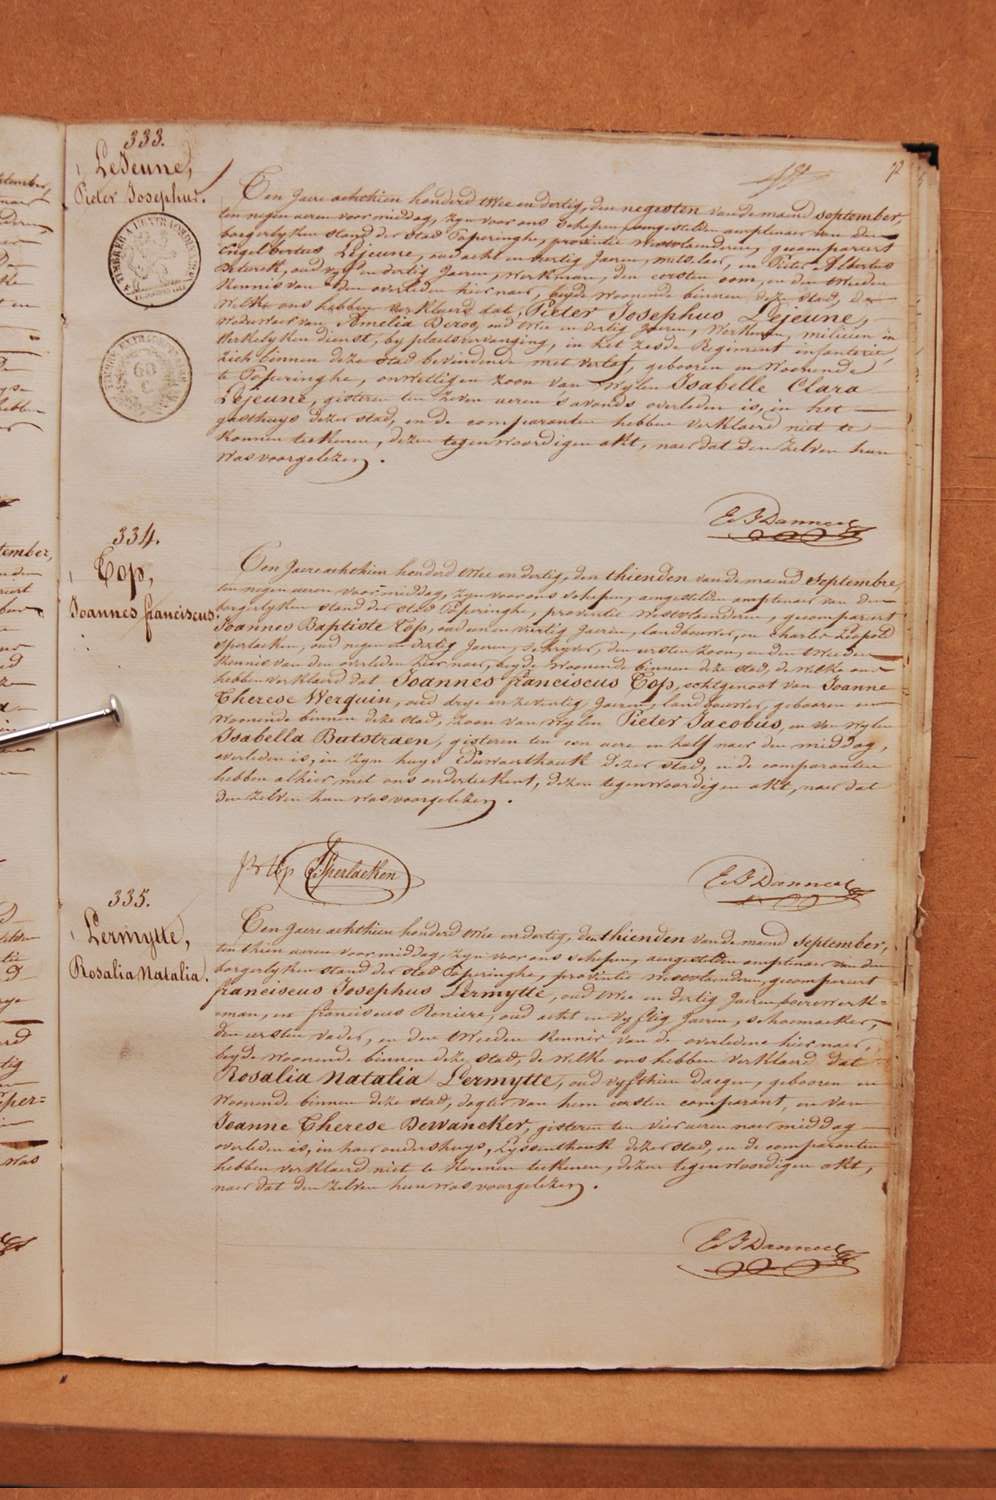 333.
LeJeune,
Pieter Josephus.
Een Jaere achthien honderd twee en dertig, den negesten van de maend september,
ten negen aeren voormiddag, zyn voor ons schepen, aengestelden amptenaer van den
borgerlyken stand der stad Poperinghe, provintie Westvlaenderen, gecompareert
Engelbertus Lejeune, oud acht en vertig Jaeren, metsler, en Pieter Albertus
oud vyf en dertig Jaeren, werkman, den eersten oom, en den tweeden
kennis van den overleden hier naer, beyde woonende binnen deze stad, de
welke ons hebben verklaerd dat, Pieter Josephus Lejeune,
weduwaer van Amelia Deroo, oud twee en dertig Jaeren, werkman, milicien in
werkelyken dienst, by plaetsvervanging, in het zesde Regiment infanterie,
zich binnen deze stad bevindende met verlof, gebooren en woonende
te Poperinghe, onwettigen zoon van wylen Isabelle Clara
Lejeune, gisteren ten zeven aeren s'avonds overleden is, in het
gasthuys dezer stad, en de comparanten hebben verklaerd niet te
konnen teekenen, dezen tegenwoordigen akt, naer dat den zelven hun
was voorgelezen.
334.
Top,
Joannes franciscus.
Een Jaere achthien honderd twee en dertig, den thienden van de maend Septembre,
ten negen aeren voormiddag, zyn voor ons schepen, aengestelden amptenaer van den
borgerlyken stand der stad Poperinghe, provintie Westvlaenderen, gecompareert
Joannes Baptiste Top, oud een en viertig Jaeren, landbouwer, en Charles Leopold
Sperlaeken, oud negen en dertig Jaeren, schryver, den eersten zoon, en den tweeden
kennis van den overleden hier naer, beyde woonende binnen deze stad, de welke ons
hebben verklaerd dat Joannes franciscus Top, echtgenoot van Joanne
Therese Werquin, oud drye en zeventig Jaeren, landbouwer, gebooren en
woonende binnen deze stad, zoon van wylen Pieter Jacobus, en van wylen
Isabella Batstraen, gisteren ten een aere en half naer den middag,
overleden is, in zyn huys Eduwaerthouk dezer stad, en de comparanten
hebben alhier met ons onderteekent, dezen tegenwoordigen akt, naer dat
den zelven hun was voorgelezen.
Top Sperlaeken
335.
Lermytte,
Rosalia Natalia.
Een Jaere achthien honderd twee en dertig, den thienden van de maend September,
ten thien aeren voormiddag, zyn voor ons schepen, aengestelden amptenaer van den
borgerlyken stand der stad Poperinghe, provintie Westvlaenderen, gecompareert
franciscus Josephus Lermytte, oud twee en dertig Jaeren,
man, en franciscus Reniere, oud acht en vyftig Jaeren, schoemaeker,
den eersten vader, en den tweeden kennis van de overledene hier naer,
beyde woonende binnen deze stad, de welke ons hebben verklaerd dat
Rosalia Natalia Lermytte, oud vyfthien daegen, gebooren en
woonende binnen deze stad, dogter van hem eersten comparant, en van
Joanne Therese Dewancker, gisteren ten vier aeren naer middag
overleden is, in haer ouders huys, Lyssenthouk dezer stad, en de comparanten
hebben verklaerd niet te konnen teekenen, dezen tegenwoordigen akt,
naer dat den zelven hun was voorgelezen.